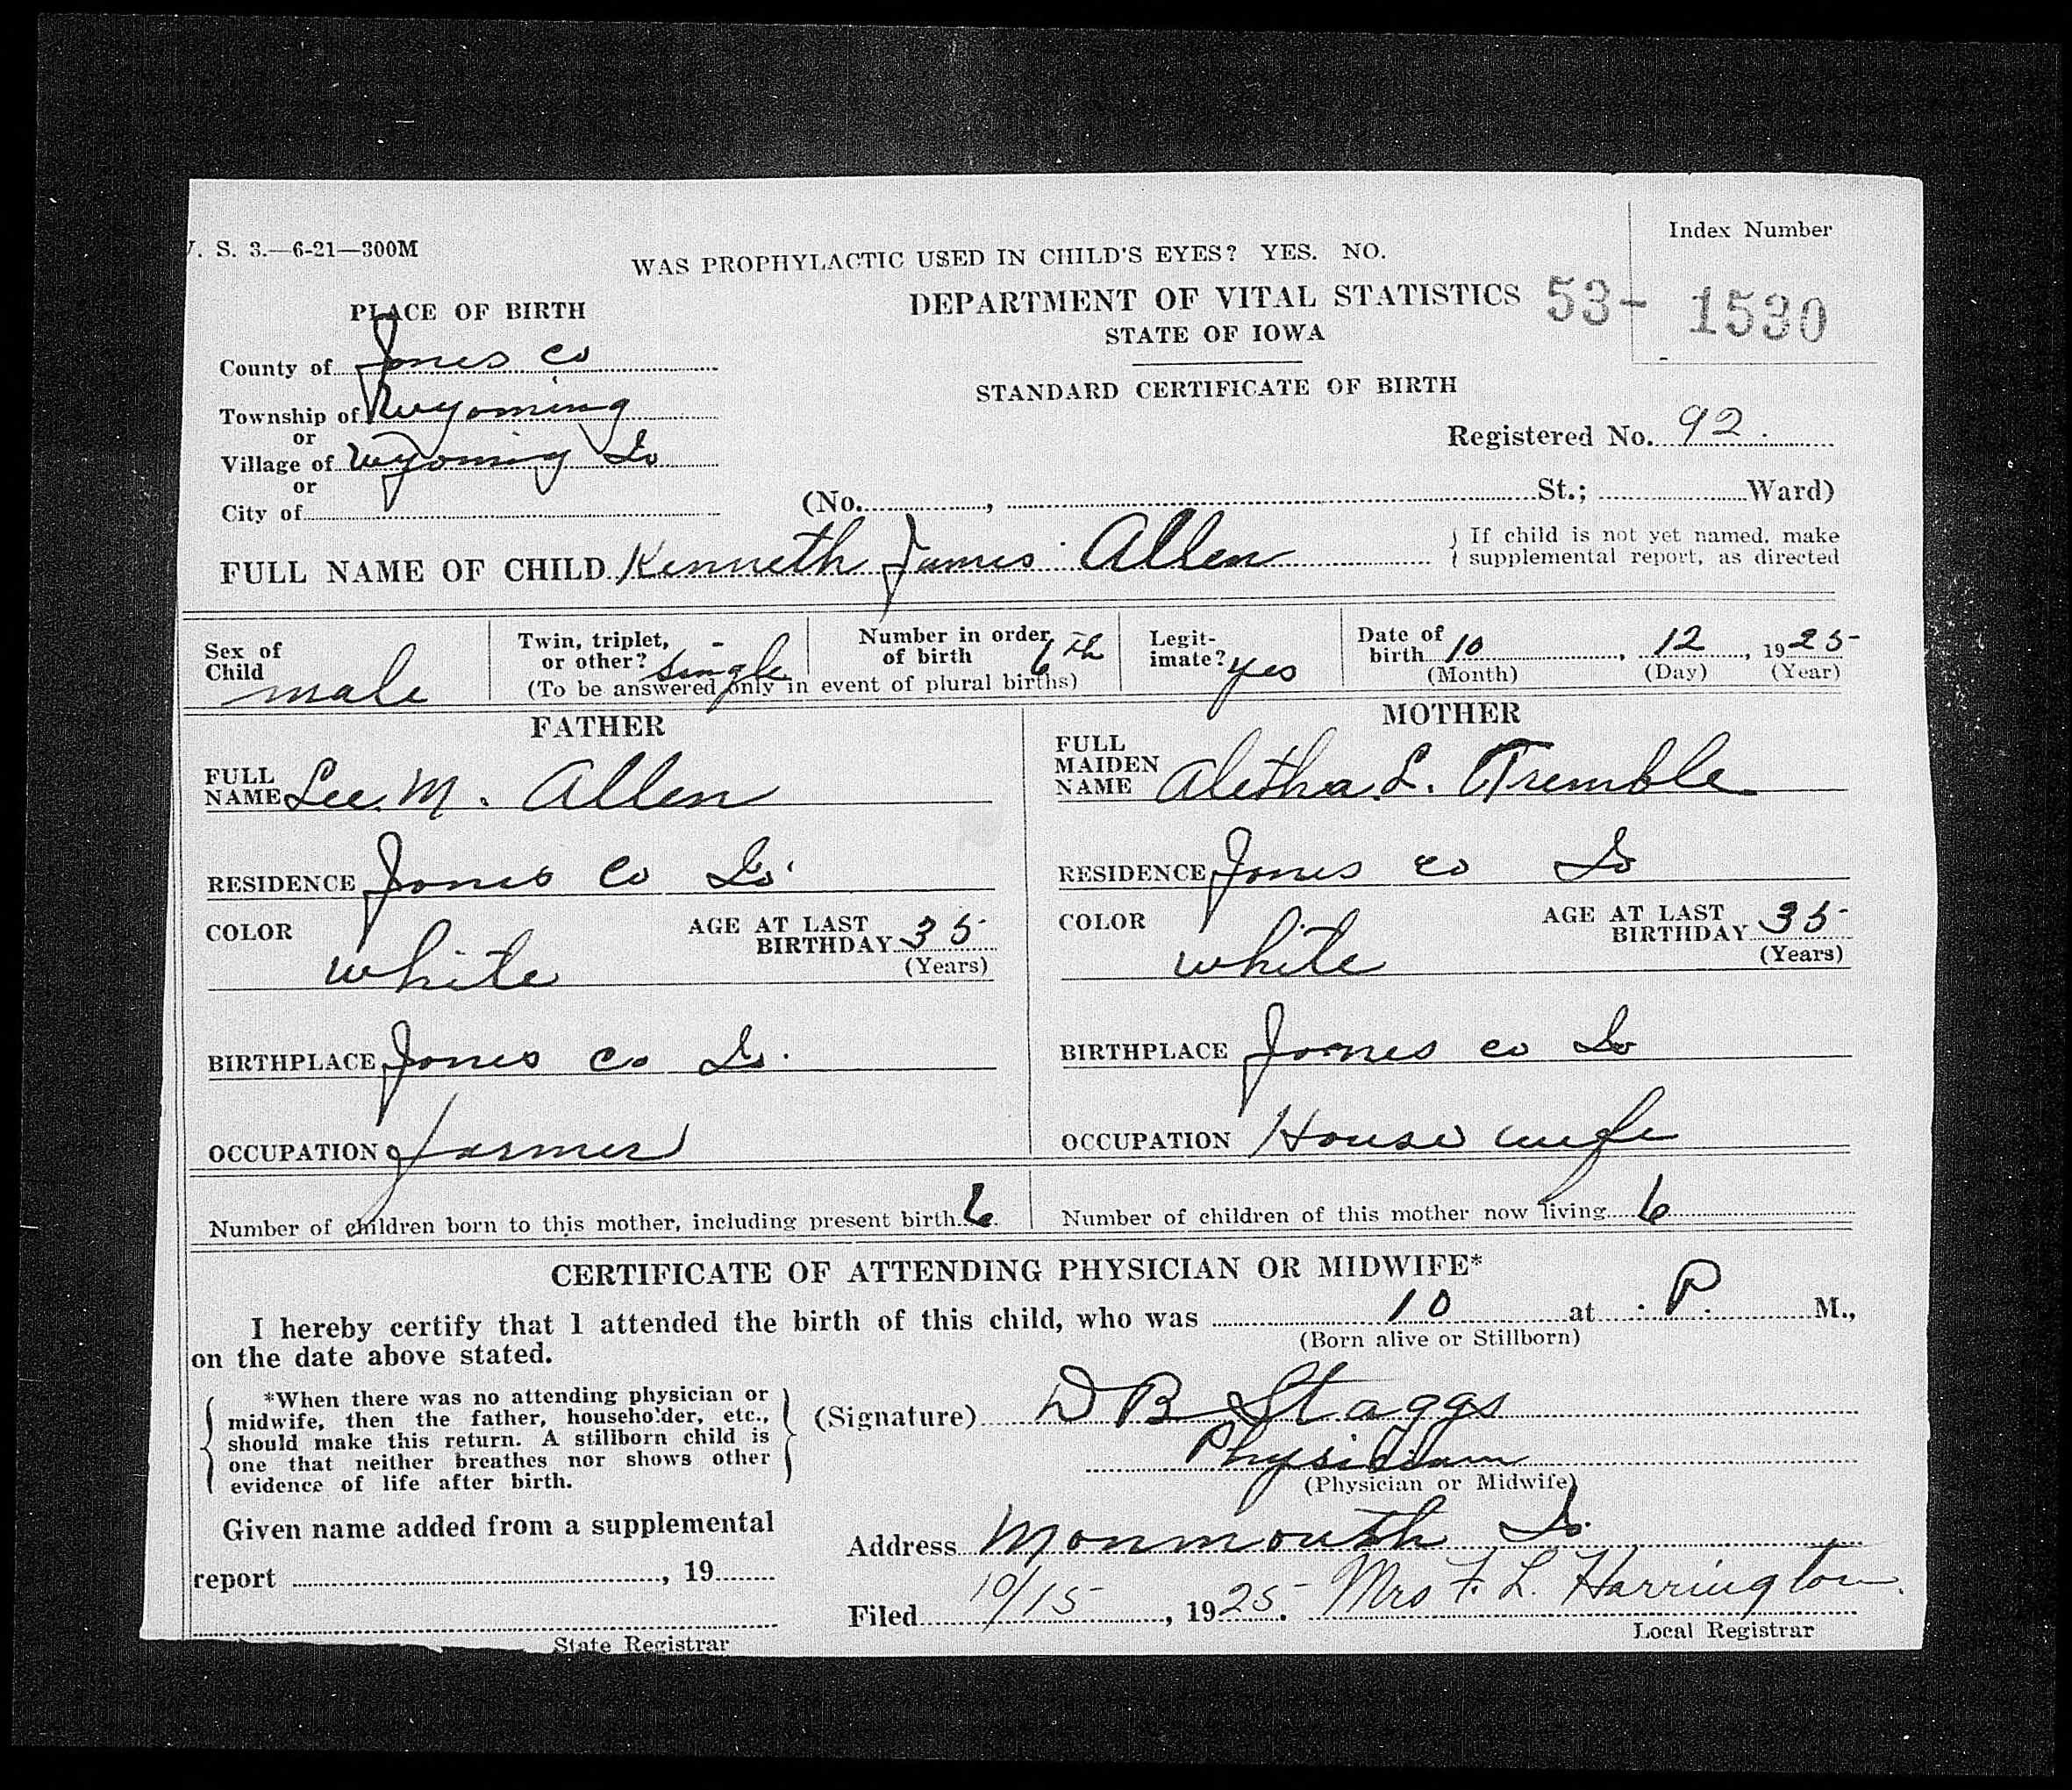 . S. 3.—6-21—300M
WAS PROPHYLACTIC USED IN CHILD'S EYES? YES. NO.
Index Number
PLACE OF BIRTH
DEPARTMENT OF VITAL STATISTICS
53- 1530
STATE OF IOWA
County of Jones Co
STANDARD CERTIFICATE OF BIRTH
Township of Wyoming
or
Registered No. 92.
Village of Wyoming Io
or
City of
(No. , St.; Ward)
FULL NAME OF CHILD Kenneth James Allen
If child is not yet named, make
supplemental report, as directed
Sex of Child male
Twin, triplet, or other? single
Number in order of birth 6th
(To be answered only in event of plural births)
Legit-imate? yes
Date of birth 10, 12, 1925
(Month) (Day) (Year)
FATHER
FULL NAME Lee. M. Allen
RESIDENCE Jones Co Io.
COLOR white
AGE AT LAST BIRTHDAY 35
(Years)
BIRTHPLACE Jones Co Io.
OCCUPATION farmer
MOTHER
FULL MAIDEN NAME Aletha. L. Tremble
RESIDENCE Jones Co Io
COLOR white
AGE AT LAST BIRTHDAY 35
(Years)
BIRTHPLACE Jones Co Io
OCCUPATION House wife
Number of children born to this mother, including present birth 6
Number of children of this mother now living 6
CERTIFICATE OF ATTENDING PHYSICIAN OR MIDWIFE*
I hereby certify that I attended the birth of this child, who was 10 at P. M.,
(Born alive or Stillborn)
on the date above stated.
*When there was no attending physician or
midwife, then the father, householder, etc.,
should make this return. A stillborn child is
one that neither breathes nor shows other
evidence of life after birth.
(Signature) D B Staggs
Physician
(Physician or Midwife)
Given name added from a supplemental
report , 19
State Registrar
Address Monmouth Io.
Filed 10/15, 1925. Mrs F. L. Harrington.
Local Registrar